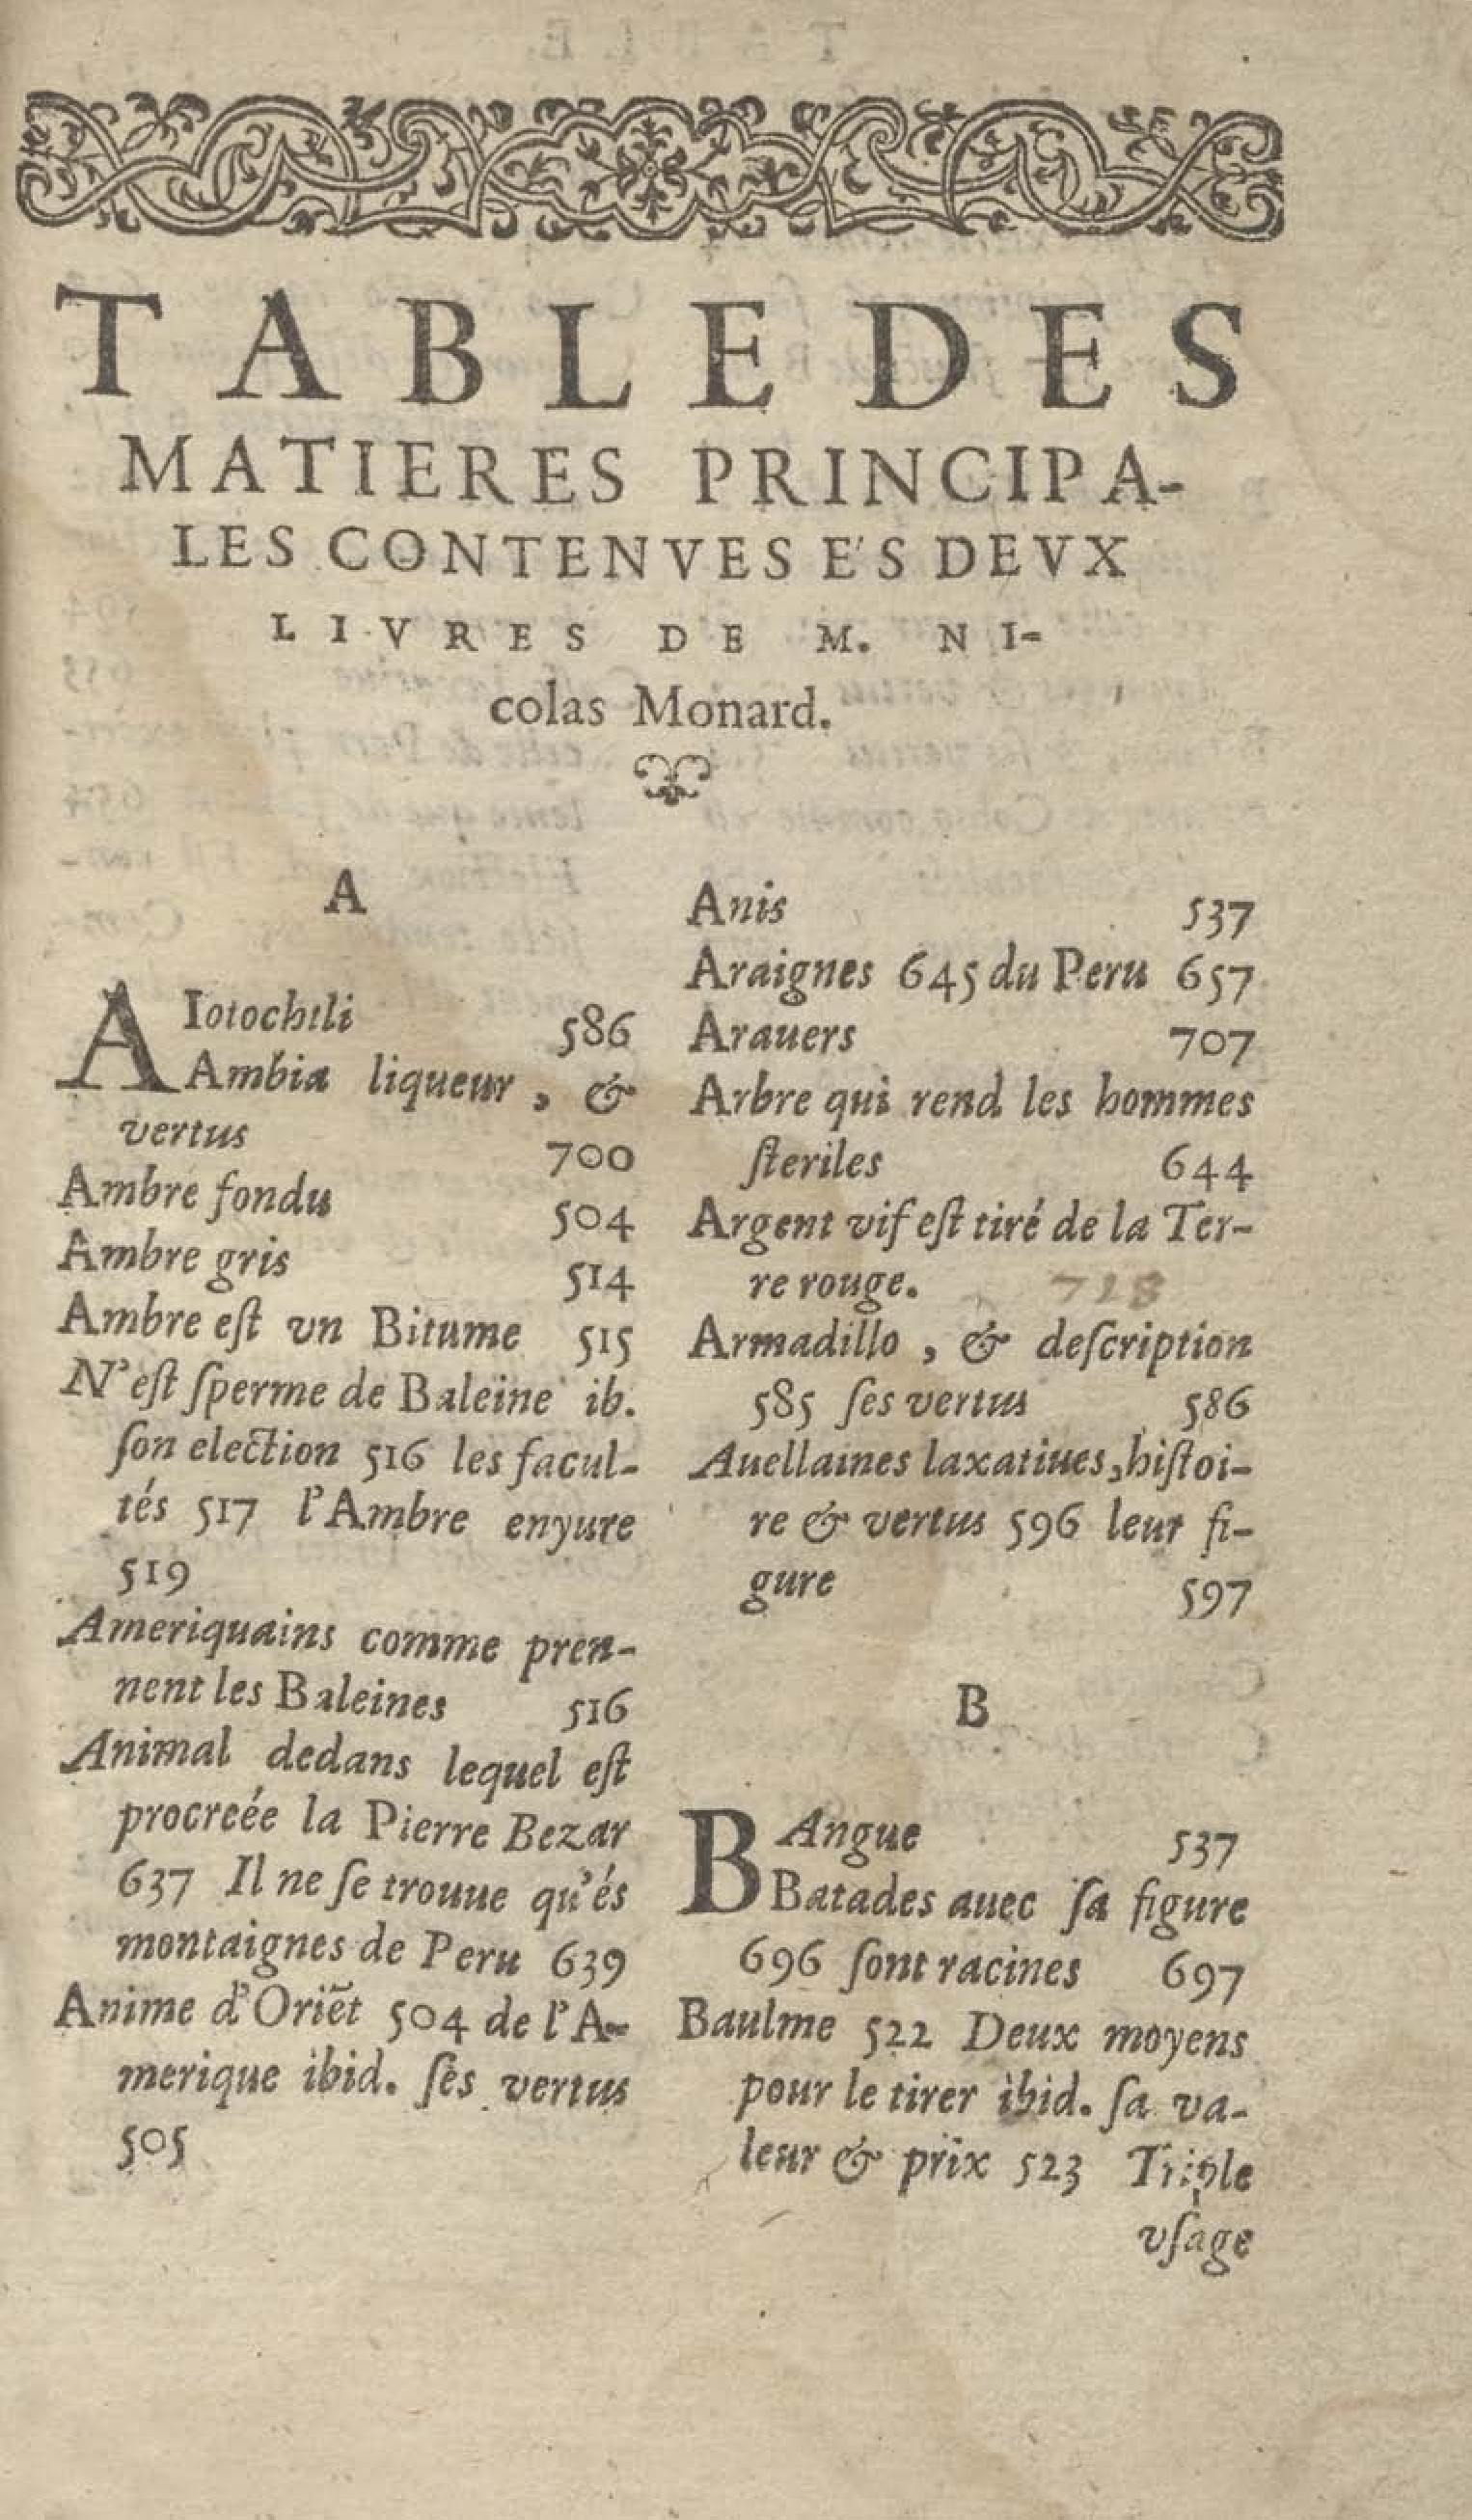 TABLE DES
MATIERES PRINCIPA-
LES CONTENVES E'S DEVX
LIVRES DE M. NI-
colas Monard.
A
AIotochtli 586
Ambia liqueur, &
vertus 700
Ambre fondu 504
Ambre gris 514
Ambre eſt vn Bitume 515
N'eſt ſperme de Baleine ib.
ſon election 516 les facul-
tés 517 l'Ambre enyure
519
Ameriquains comme pren-
nent les Baleines 516
Animal dedans lequel eſt
procreée la Pierre Bezar
637 Il ne ſe trouue qu'és
montaignes de Peru 639
Anime d'Oriẽt 504 de l'A-
merique ibid. ſes vertus
505
Anis 537
Araignes 645 du Peru 657
Arauers 707
Arbre qui rend les hommes
ſteriles 644
Argent vif eſt tiré de la Ter-
re rouge. 718
Armadillo, & deſcription
585 ſes vertus 586
Auellaines laxatiues, hiſtoi-
re & vertus 596 leur fi-
gure 597
B
BAngue 537
Batades auec ſa figure
696 ſont racines 697
Baulme 522 Deux moyens
pour le tirer ibid. ſa va-
leur & prix 523 Triple
vſage